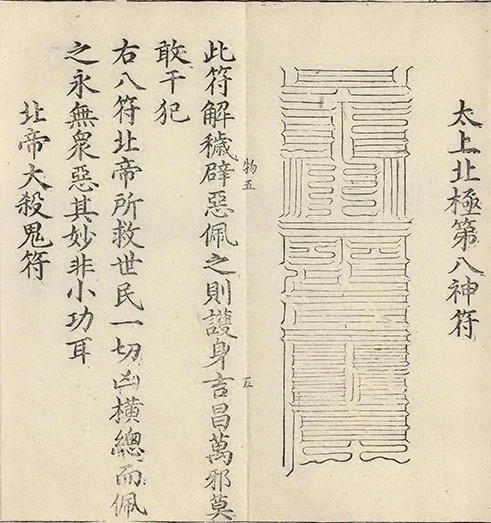 太上北極第八神符
物五
五
此符解穢辟惡佩之則護身吉昌萬邪莫
敢干犯
右八符北帝所救世民一切凶橫總而佩
之永無衆惡其妙非小功耳
北帝大殺鬼符